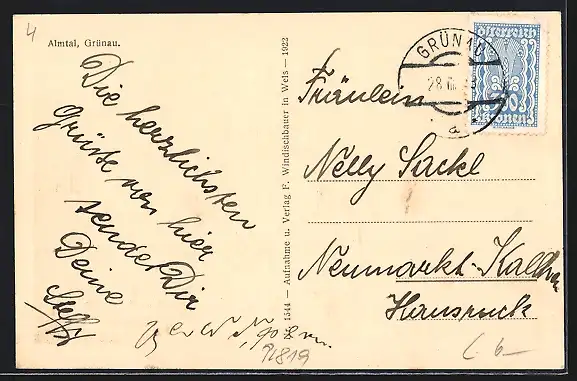 4
Almtal, Grünau.
Die herzlichsten
Grüße von hier
sendet Dir
Deine
No. 1544 — Aufnahme u. Verlag F. Windischbauer in Wels — 1922
GRÜNAU
28
a
Österreich
Kronen
Fräulein
Nelly Sackl
Neumarkt-Kallham
Hausruck
91819